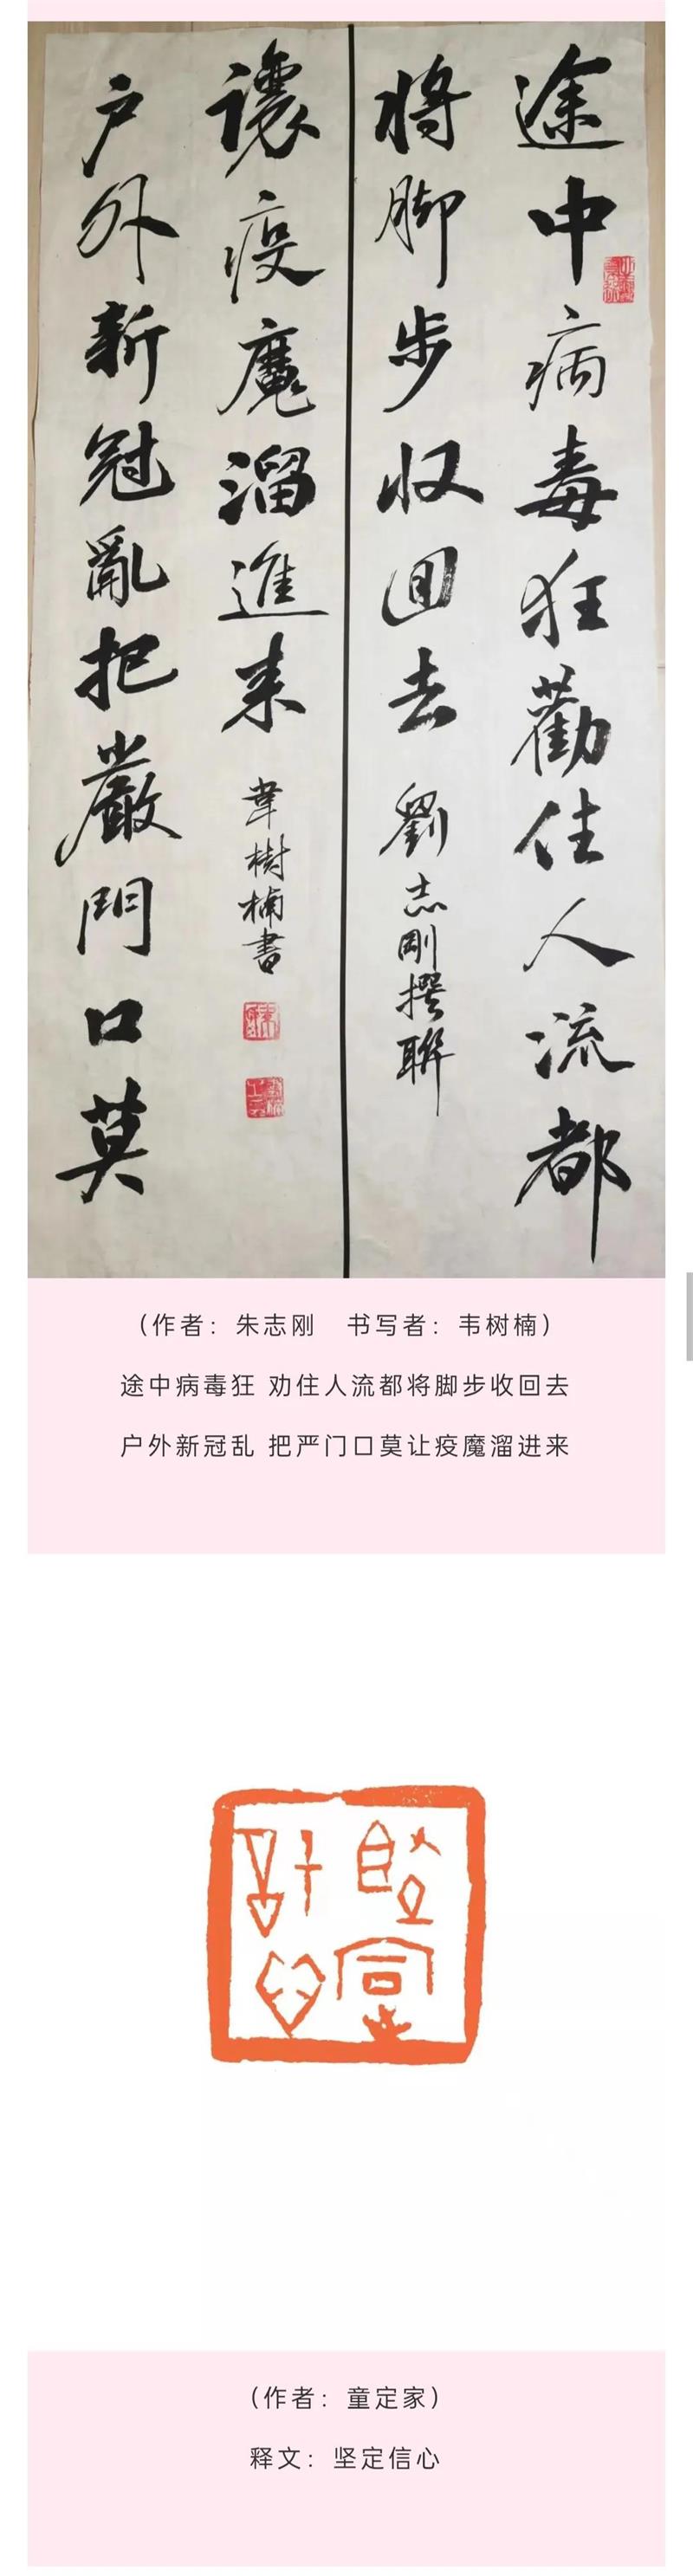 途中病毒狂勸住人流都
将脚步收回去
劉志剛撰聯
户外新冠亂把嚴門口莫
讓疫魔溜進来
韋樹楠書
（作者：朱志刚 书写者：韦树楠）
途中病毒狂 劝住人流都将脚步收回去
户外新冠乱 把严门口莫让疫魔溜进来
（作者：童定家）
释文：坚定信心